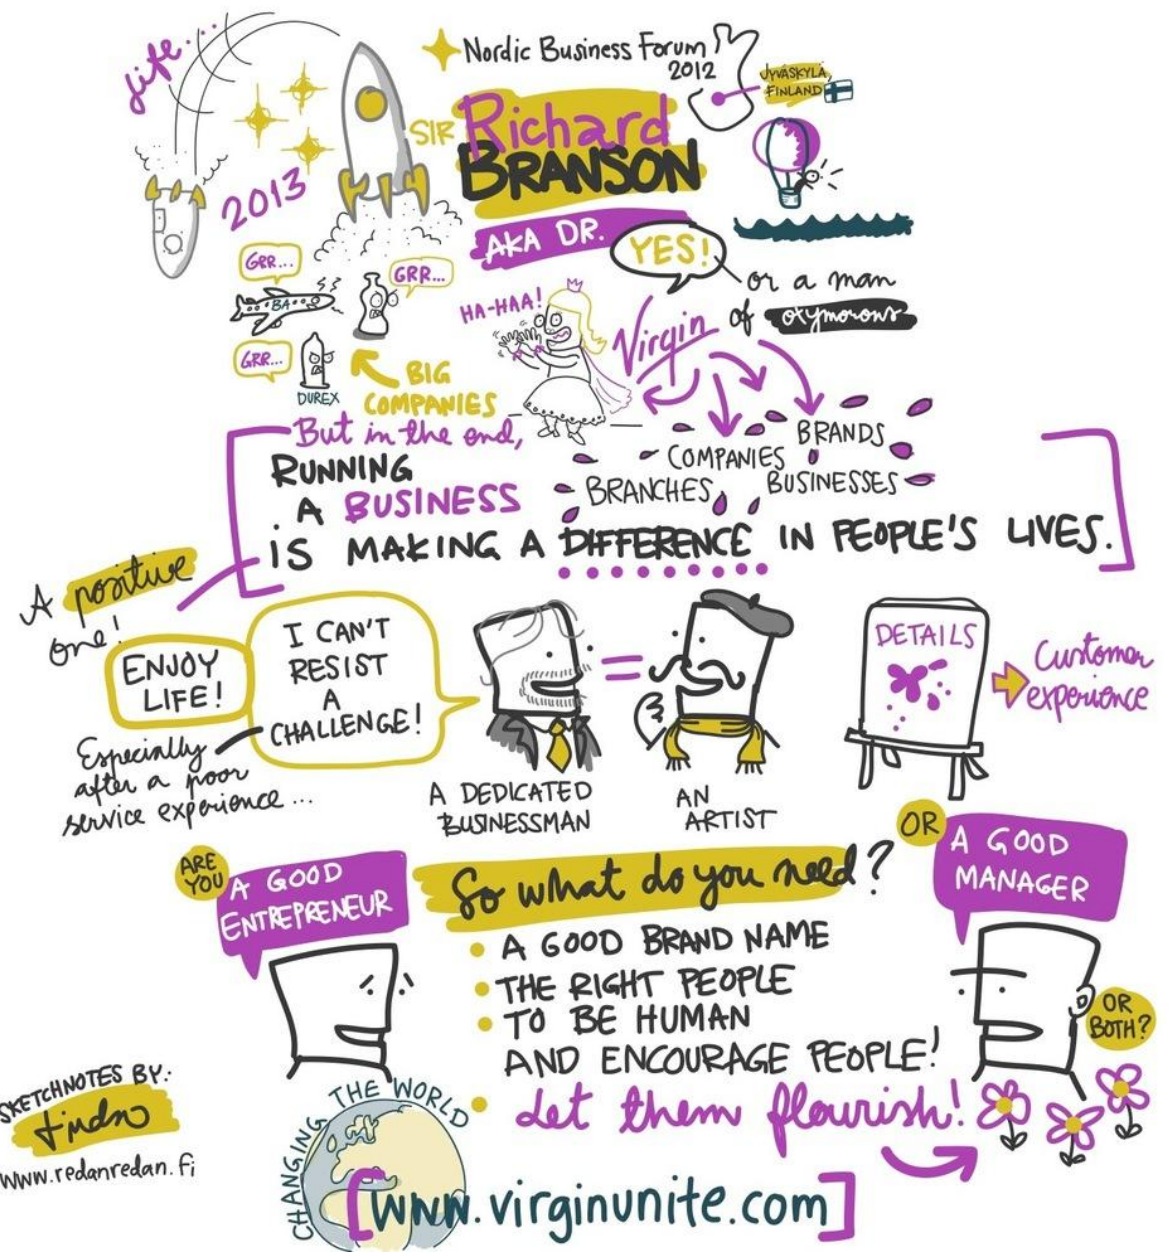 Life...
Nordic Business Forum
2012
JYVÄSKYLÄ,
FINLAND
SIR Richard
BRANSON
2013
AKA DR.
YES!
or a man
of oxymorons
GRR...
BA
GRR...
GRR...
DUREX
BIG
COMPANIES
HA-HAA!
Virgin
BRANDS
COMPANIES
BUSINESSES
BRANCHES
But in the end,
RUNNING
A BUSINESS
IS MAKING A DIFFERENCE IN PEOPLE'S LIVES.
A positive
one!
ENJOY
LIFE!
I CAN'T
RESIST
A
CHALLENGE!
Especially
after a poor
service experience...
A DEDICATED
BUSINESSMAN
=
AN
ARTIST
DETAILS
Customer
experience
ARE
YOU
A GOOD
ENTREPRENEUR
OR
A GOOD
MANAGER
OR
BOTH?
So what do you need?
• A GOOD BRAND NAME
• THE RIGHT PEOPLE
• TO BE HUMAN
AND ENCOURAGE PEOPLE!
• Let them flourish!
CHANGING THE WORLD
[www.virginunite.com]
SKETCHNOTES BY:
www.redanredan.fi